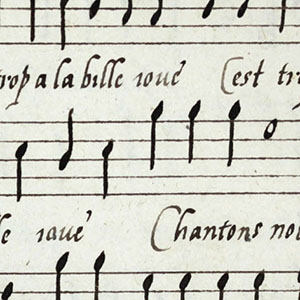 trop a la bille ioué Cest tr
le iaué Chantons nou